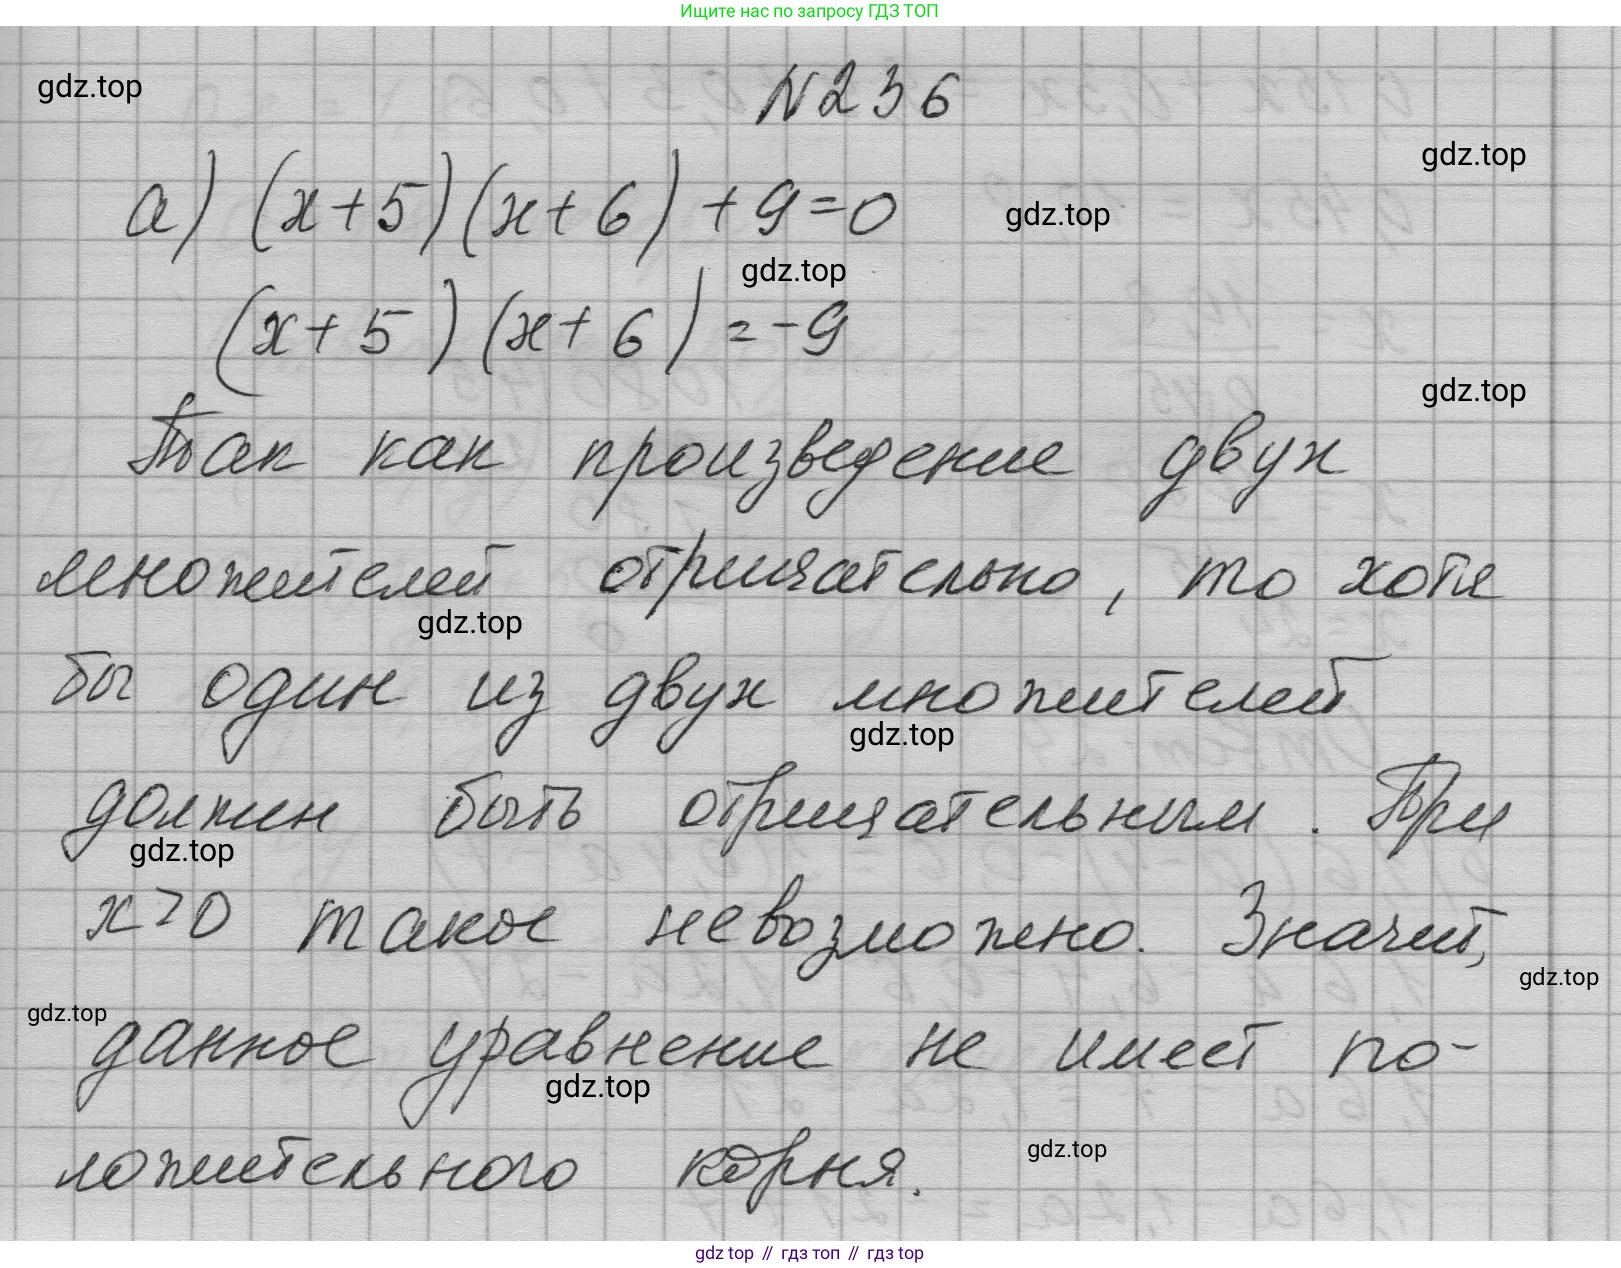 Ищите нас по запросу ГДЗ ТОП
gdz.top
N236
gdz.top
а) (x+5)(x+6)+9=0
gdz.top
gdz.top
(x+5)(x+6)=-9
gdz.top
Так как произведение двух
множителей отрицательно, то хотя
gdz.top
бы один из двух множителей
gdz.top
должен быть отрицательным. При
gdz.top
x>0 такое невозможно. Значит,
gdz.top
gdz.top
данное уравнение не имеет по-
gdz.top
ложительного корня.
gdz.top
gdz top // гдз топ // гдз top